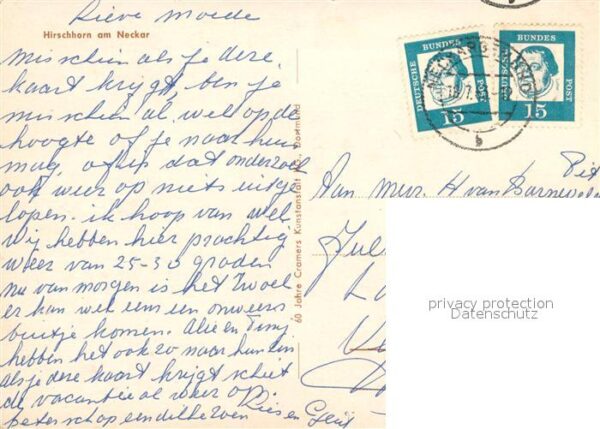 Lieve moede
Hirschhorn am Neckar
Misschien als je deze
kaart krijgt ben je
misschien al wel op de
hoogte of je naar huis
mag, of is dat onderzoek
ook weer op niets uitge
lopen. ik hoop van wel
wij hebben hier prachtig
weer van 25-30 graden
nu van morgen is het zwoel
er kan wel eens een onweers
buitje komen. Alie en Timy
hebben het ook zo naar hun zin
als je deze kaart krijgt schiet
de vacantie al weer op.
peter schop een dikke zoen Ries en
60 Jahre Cramers Kunstanstalt KG., Dortmund
DEUTSCHE BUNDES POST
15
DEUTSCHE BUNDES POST
15
b
Aan mevr. H van Barneveld
privacy protection
Datenschutz